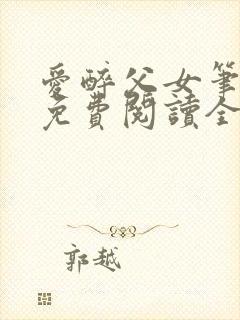 愛醉父女筆
免費閱讀全
郭越